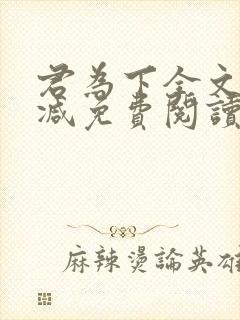 君為下全文
減免費閱讀
麻辣燙論英雄